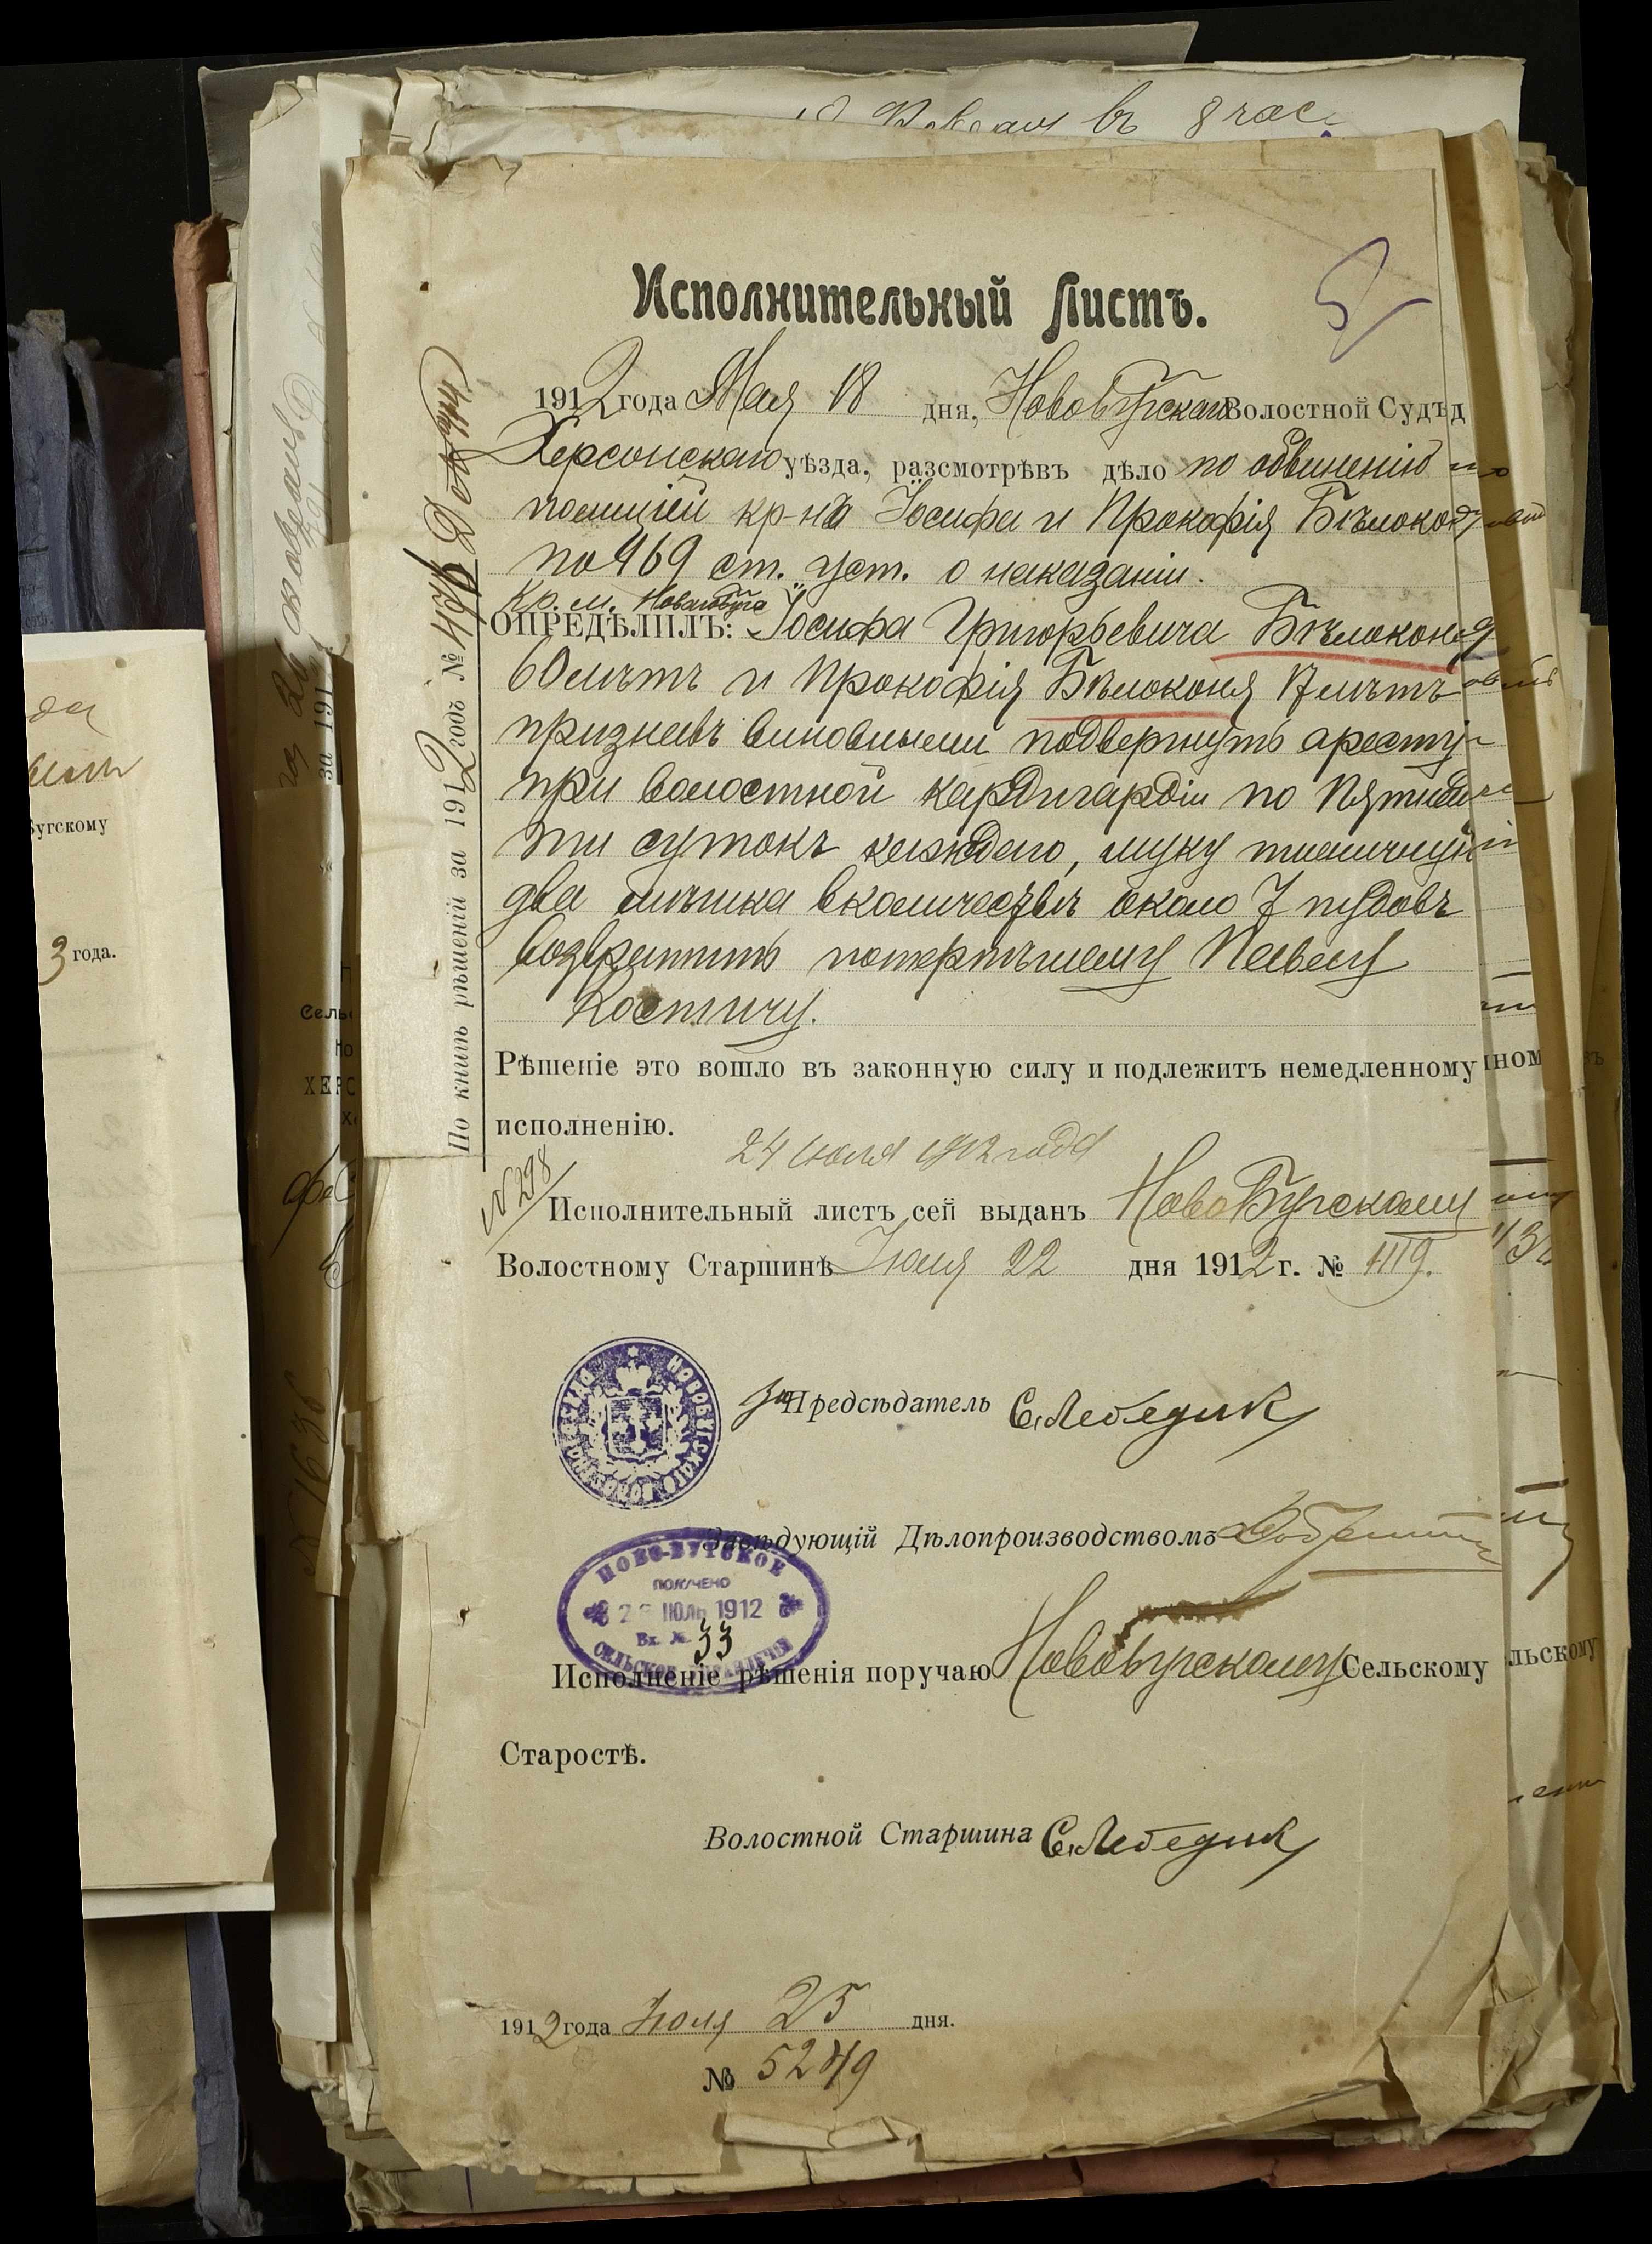 въ 8 час.
Исполнительный Листъ.
1912 года Мая 18 дня, Новобугскаго Волостной Судъ
Херсонскаго уѣзда, разсмотрѣвъ дѣло по обвиненію
полиціей кр-на Іосифа и Прокофія Бѣлоко
по 169 ст. уст. о наказаніи.
Кр. м. Новаго Буга
ОПРЕДѢЛИЛЪ: Іосифа Григорьевича Бѣлоконя
60 лѣтъ и Прокофія Бѣлоконя 17 лѣтъ
признавъ виновными подвергнуть аресту
при волостной кардигардіи по Пятнадца
ти сутокъ каждаго, муку пшеничную
два мѣшка в количествѣ около 7 пудовъ
возвратить потерпѣвшему Павлу
Костичу.
Рѣшеніе это вошло въ законную силу и подлежитъ немедленному
исполненію.
24 июля 1912 года
№ 298
Исполнительный листъ сей выданъ НовоБугскому
Волостному Старшинѣ Іюля 22 дня 1912 г. № 1119.
За Предсѣдатель С. Лебедик
Завѣдующій Дѣлопроизводствомъ
НОВО-БУГСКОЕ
ПОЛУЧЕНО
ІЮЛЬ 1912
Вх. № 33
СЕЛЬСКОЕ
Исполненіе рѣшенія поручаю Новобугскому Сельскому
Старостѣ.
Волостной Старшина С. Лебедик
1912 года Іюля 25 дня.
№ 5249
По книгѣ рѣшеній за 1912 годъ № 496
Бугскому
3 года.